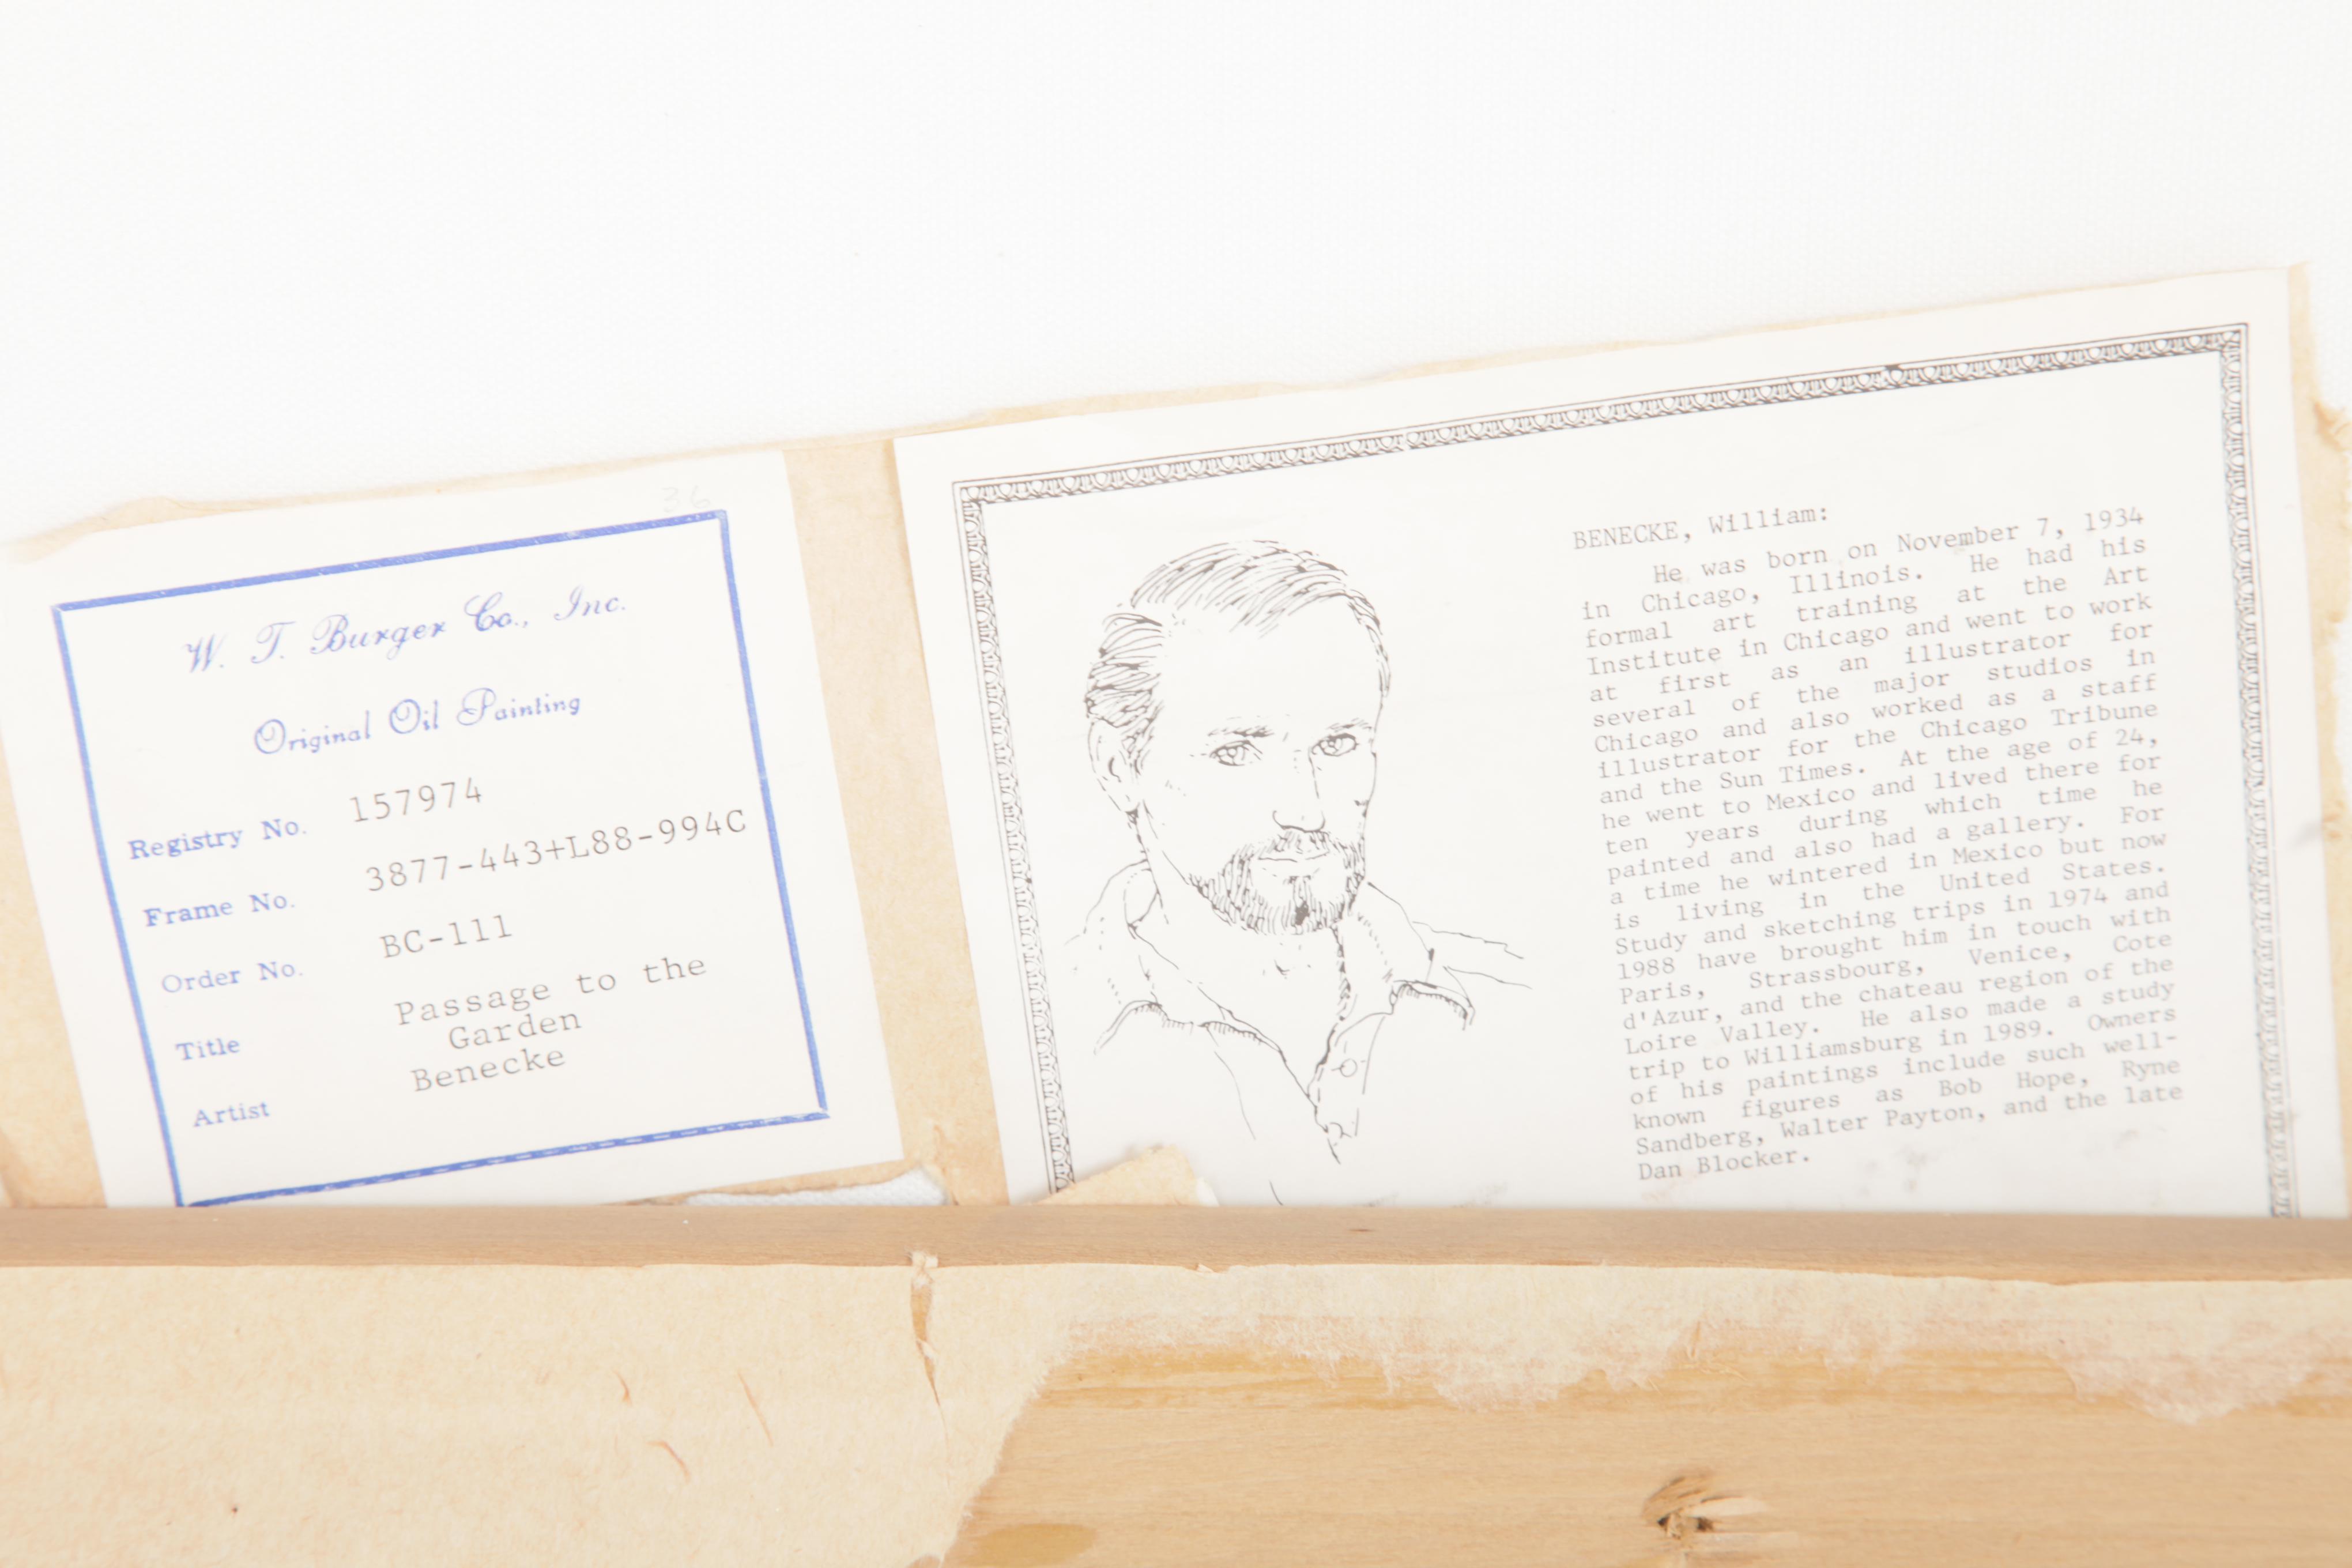 36
W. T. Burger Co., Inc.
Original Oil Painting
Registry No. 157974
Frame No. 3877-443+L88-994C
Order No. BC-111
Title Passage to the
Garden
Artist Benecke
BENECKE, William:
He was born on November 7, 1934
in Chicago, Illinois. He had his
formal art training at the Art
Institute in Chicago and went to work
at first as an illustrator for
several of the major studios in
Chicago and also worked as a staff
illustrator for the Chicago Tribune
and the Sun Times. At the age of 24,
he went to Mexico and lived there for
ten years during which time he
painted and also had a gallery. For
a time he wintered in Mexico but now
is living in the United States.
Study and sketching trips in 1974 and
1988 have brought him in touch with
Paris, Strassbourg, Venice, Cote
d'Azur, and the chateau region of the
Loire Valley. He also made a study
trip to Williamsburg in 1989. Owners
of his paintings include such well-
known figures as Bob Hope, Ryne
Sandberg, Walter Payton, and the late
Dan Blocker.